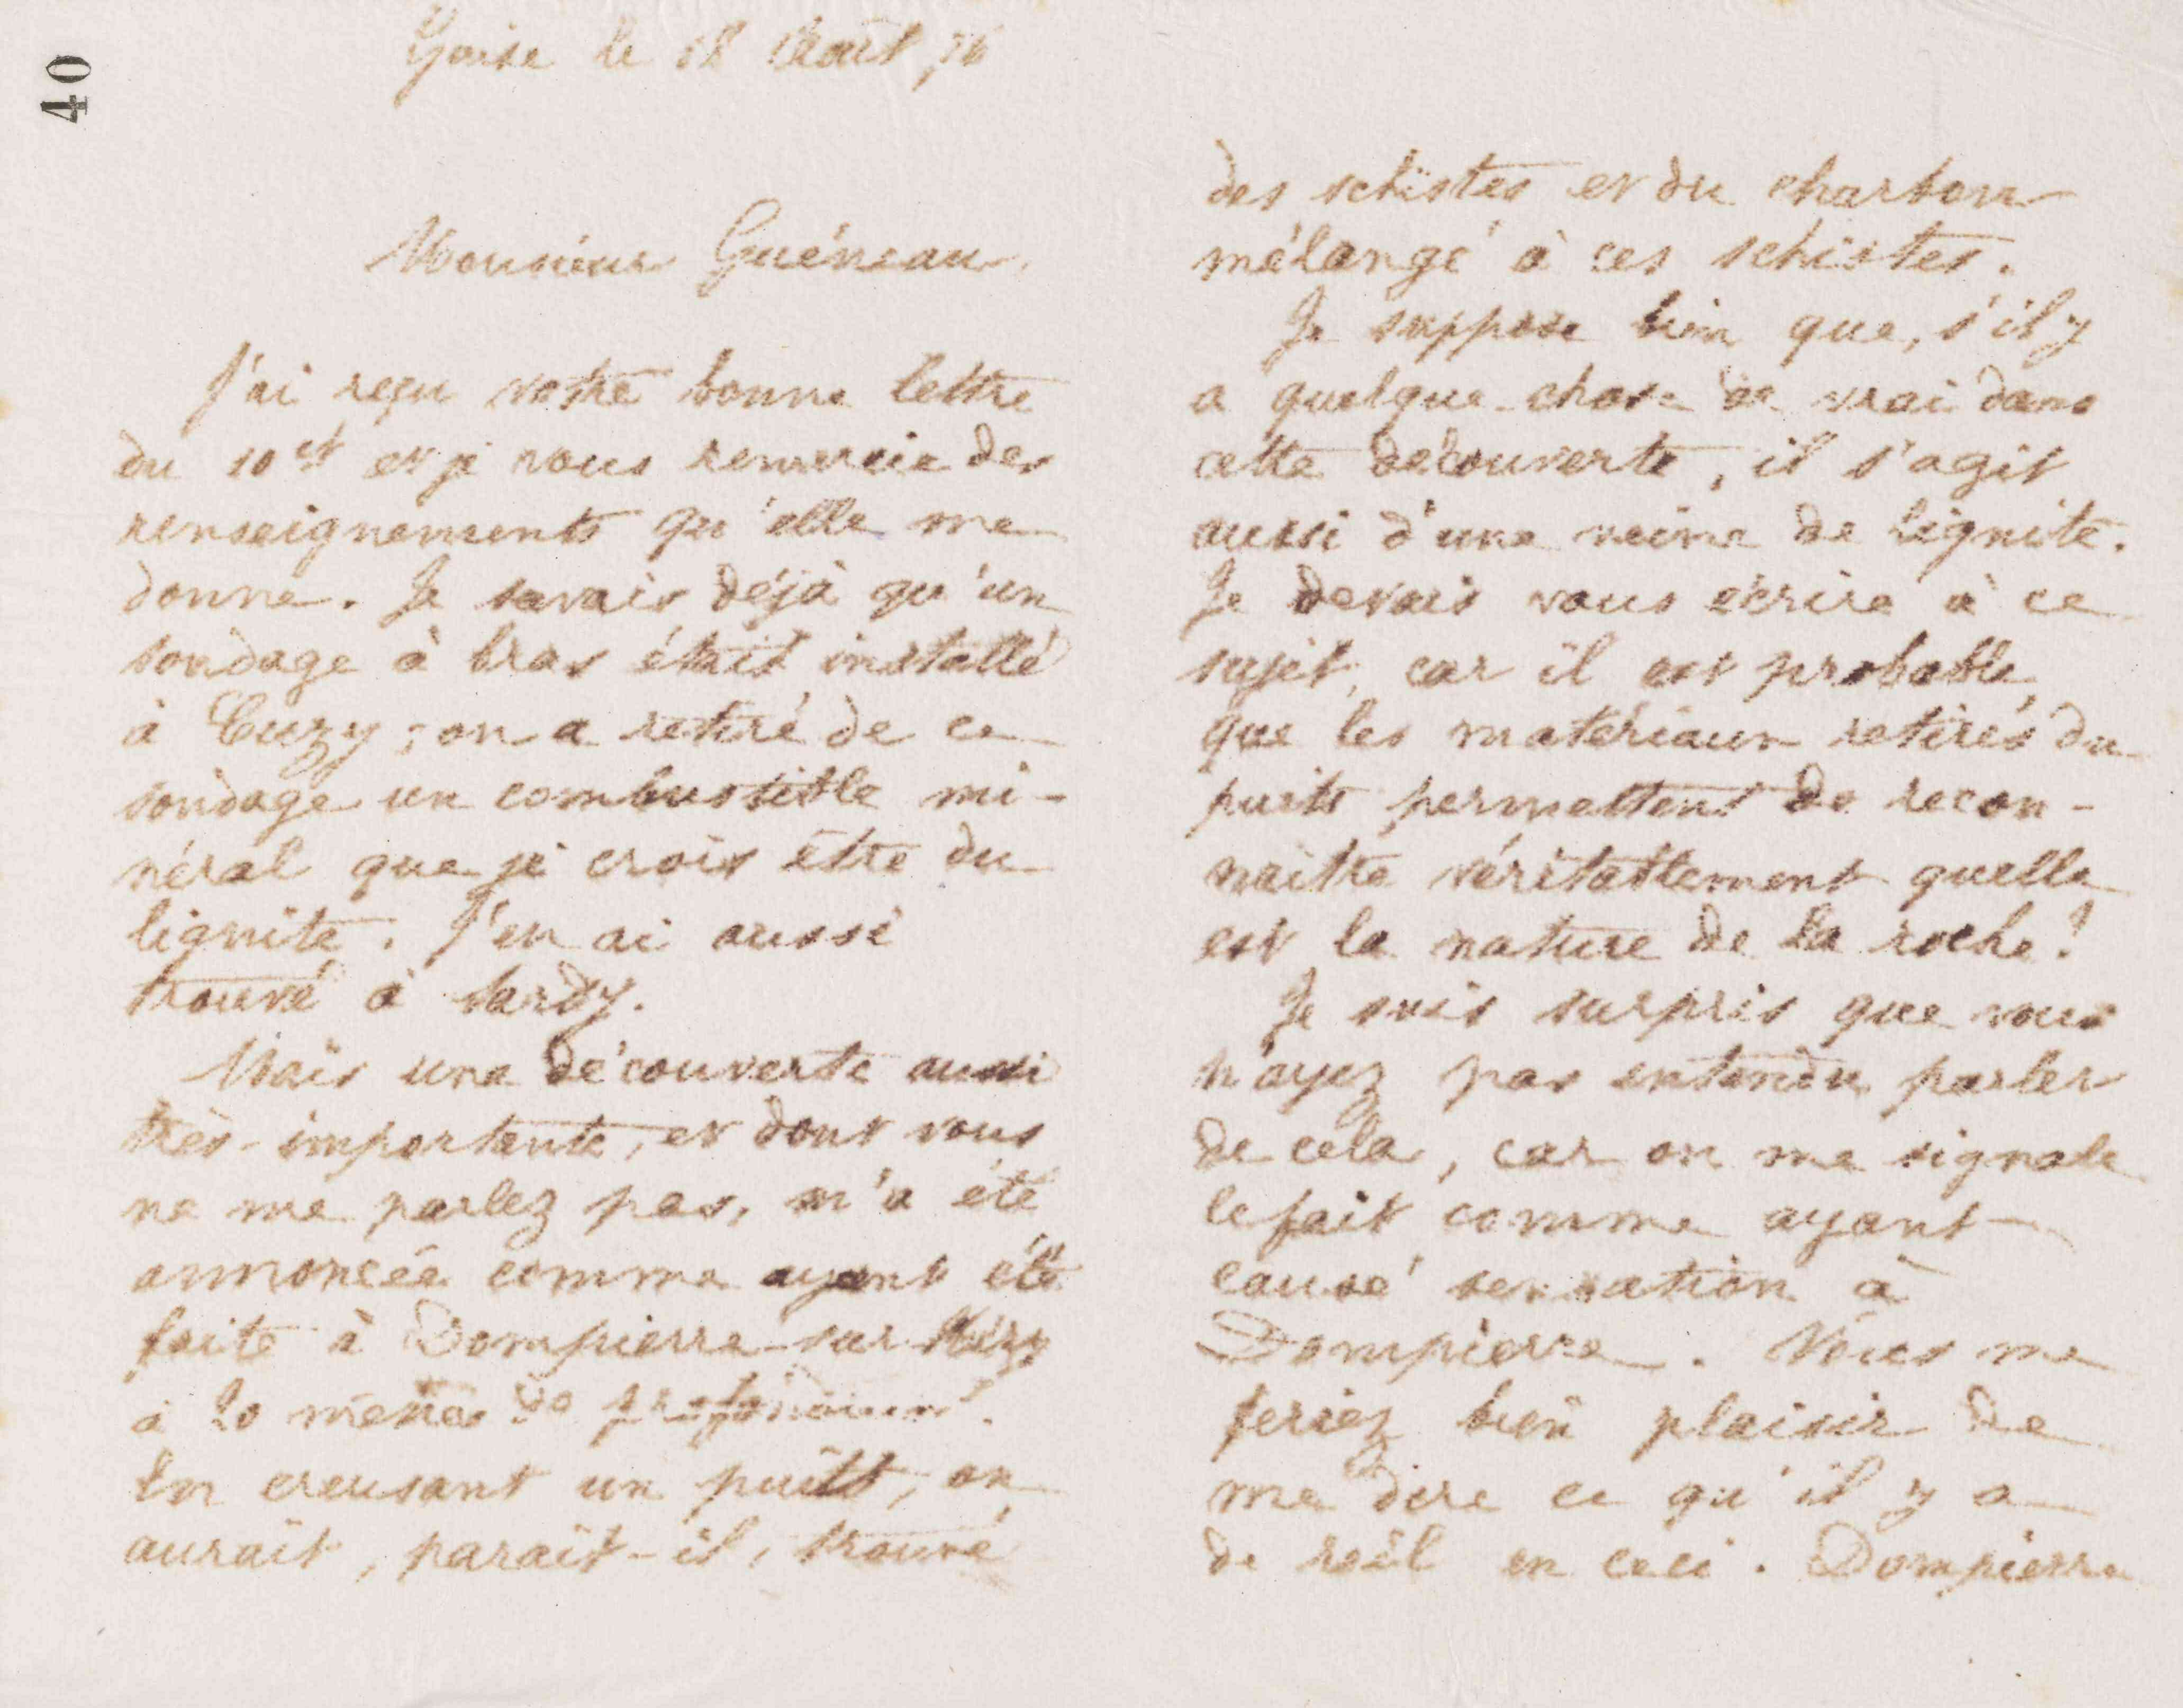 40
le 18 Août, 76
Monsieur Guéneau,
J'ai reçu votre bonne lettre
du 10 ct et je vous remercie des
renseignements qu'elle me
donne. Je savais déjà qu'un
sondage à bras était installé
à Cuzy ; on a retiré de ce
sondage un combustible mi-
néral que je crois être du
lignite. J'en ai aussi
trouvé à Sardy.
Mais une découverte aussi
très-importante, et dont vous
ne me parlez pas, m'a été
annoncée comme ayant été
faite à Dompierre-sur-Héry
à 20 mètres de profondeur.
En creusant un puits, on
aurait, parait-il, trouvé
des schistes et du charbon
mélangé à ces schistes.
Je suppose bien que, s'il y
a quelque chose de vrai dans
cette découverte, il s'agit
aussi d'une veine de lignite.
Je devais vous écrire à ce
sujet, car il est probable
que les matériaux retirés du
puits permettent de recon-
naître véritablement quelle
est la nature de la roche !
Je suis surpris que vous
n'ayez pas entendu parler
de cela, car on me signale
le fait comme ayant
causé sensation à
Dompierre. Vous me
feriez bien plaisir de
me dire ce qu'il y a
de réel en ceci. Dompierre